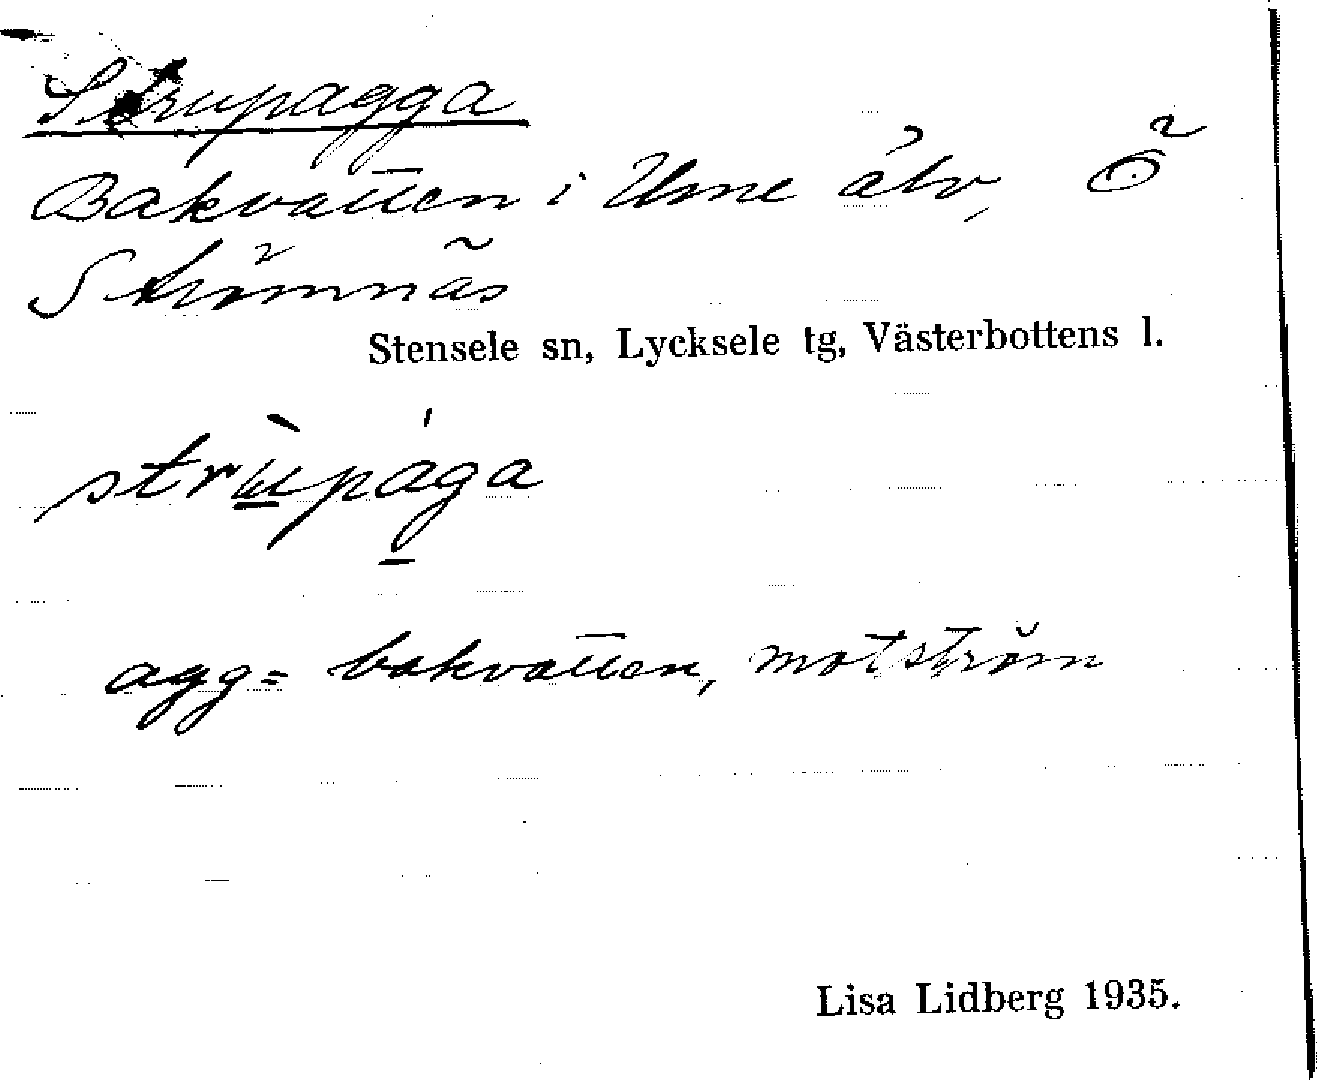 Strupagga
Bakvatten i Ume älv, Ö
Strömnäs
Stensele sn, Lycksele tg, Västerbottens l.
strùpága
agg = bakvatten, motström
Lisa Lidberg 1935.